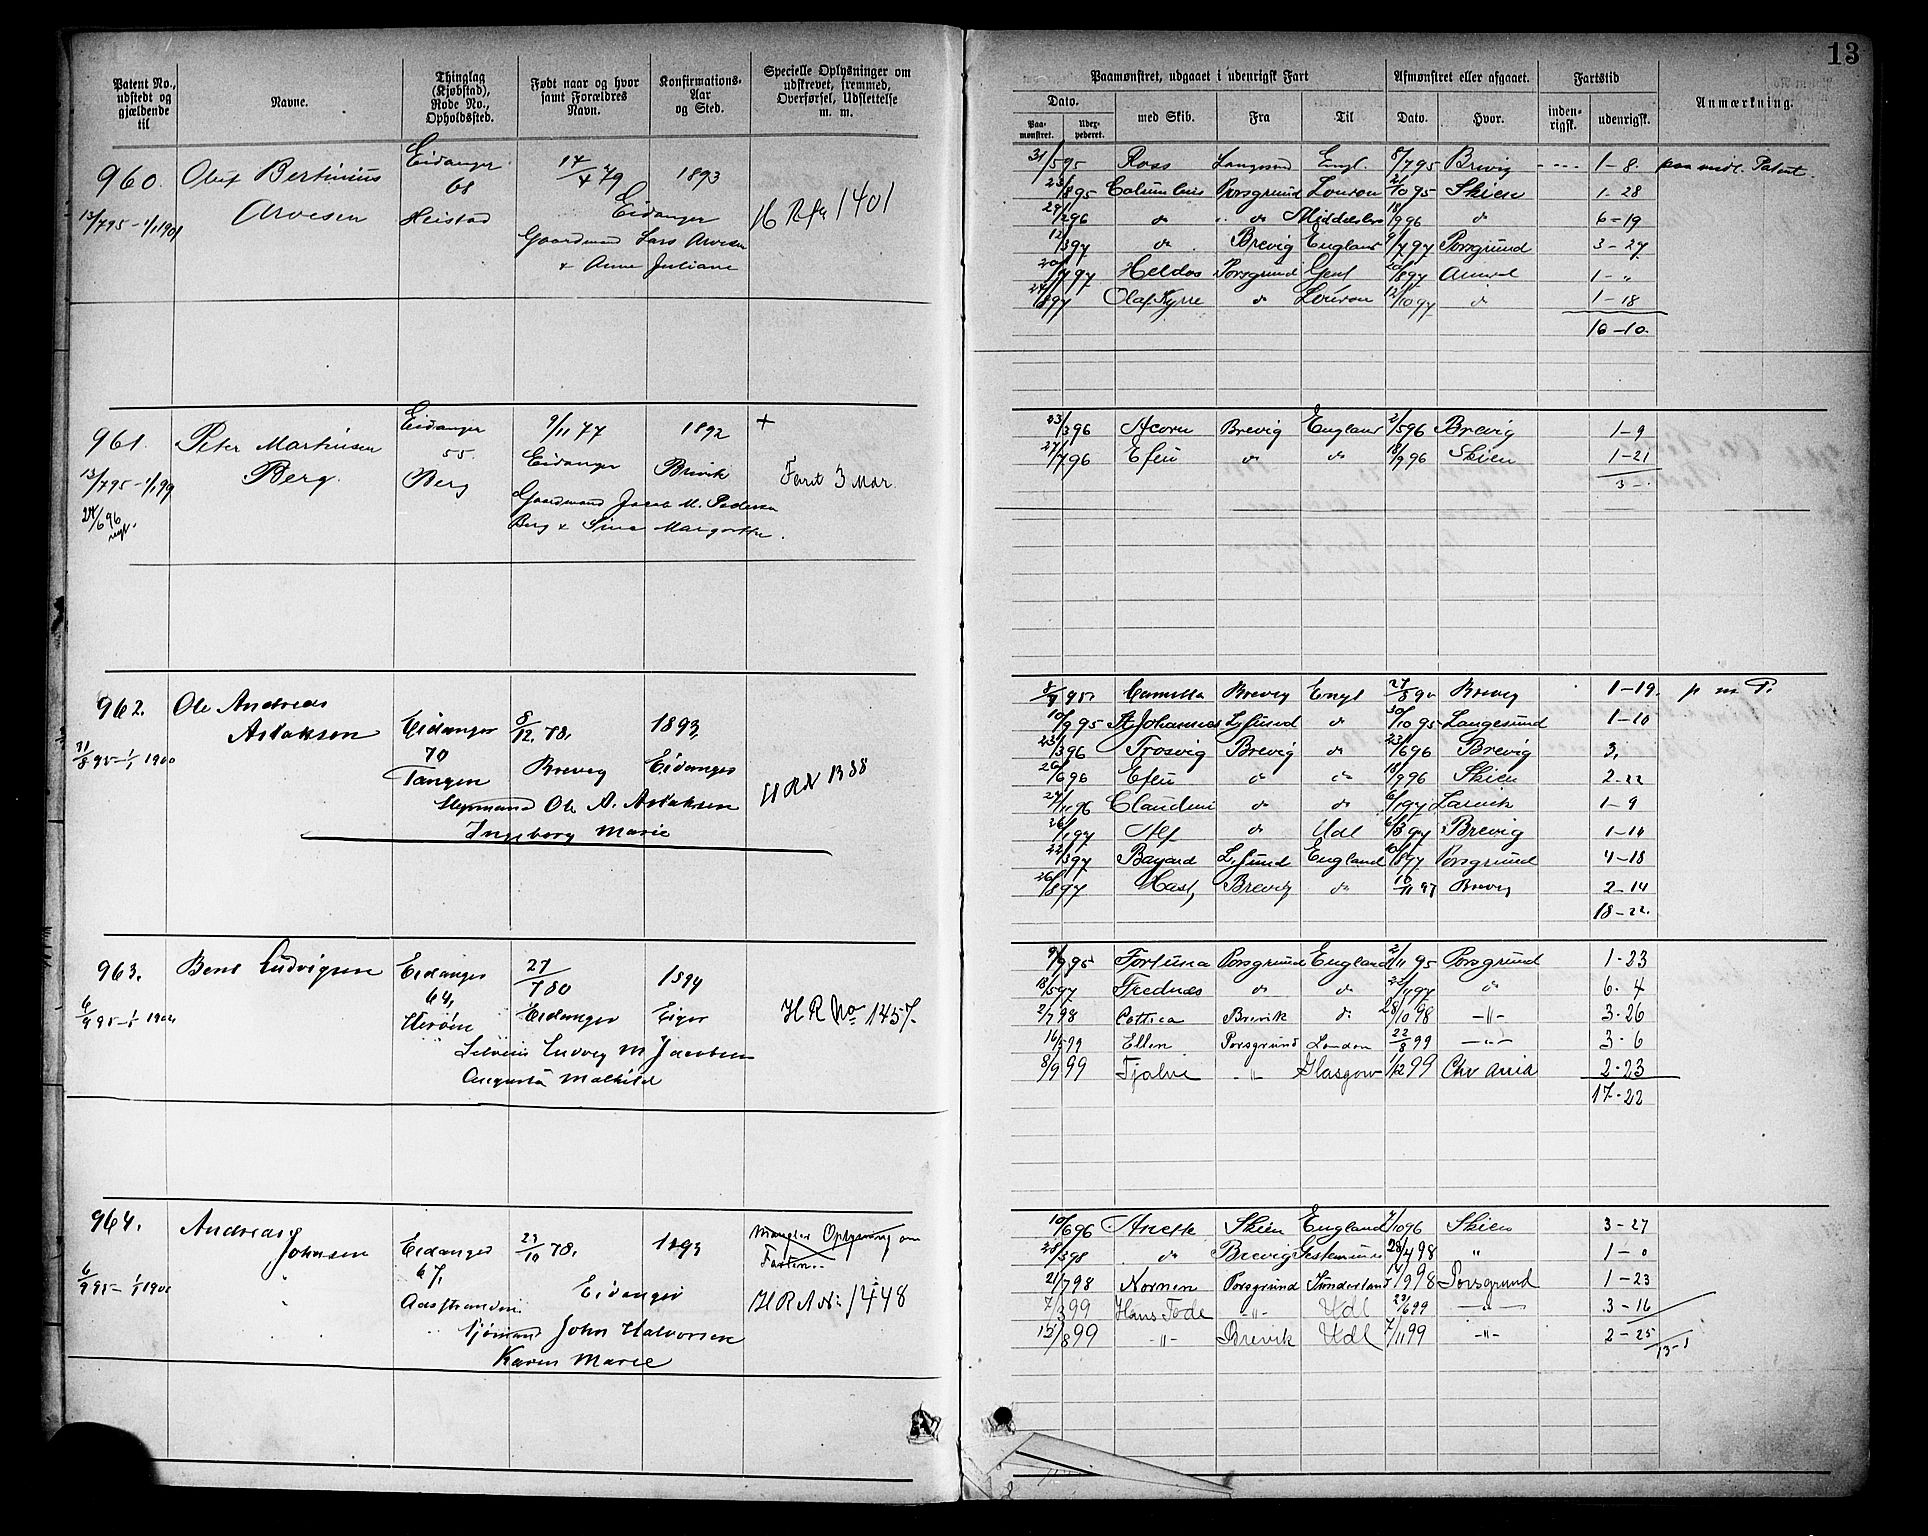 13
Patent No., udstedt og gjældende til
Navne.
Thinglag (Kjøbstad), Rode No., Opholdssted.
Født naar og hvor samt Forældres Navn.
Konfirmations-Aar og Sted.
Specielle Oplysninger om udskrevet, fremmed, Overførsel, Udslettelse m. m.
Paamønstret, udgaaet i udenrigsk Fart
Afmønstret eller afgaaet.
Fartstid
Anmærkning.
Dato.
Paa-mønstret.
med Skib.
Fra
Til
Dato.
Hvor.
inden-rigsk.
udenrigsk.
960. Olaf Bertinius Eidanger 17/4 79 1893
Arvesen 68
13/7 95 - 1/1 1901 Heistad Eidanger H R 1401
Gaardmand Lars Arvesen
+ Anne Juliane
31/5 95 Ross Langesund Engl. 8/7 95 Brevig 1-8. paa midl. Patent.
23/8 95 Columbus Porsgrund London 2/10 95 Skien 1-28
do do 18/9 96 do 6-19
12/3 97 do Brevig England 9/7 97 Porsgrund 3-27
20/7 97 Heldos Porsgrund Gent 20/8 97 1-"
24/8 97 Olaf Kyrre do London 12/10 97 do 1-18
16-10.
961. Peter Martinsen Eidanger 9/11 77 1892 +
Berg. 55.
13/7 95 - 1/1 99 Berg Eidanger Brevik Farit 3 Mdr.
24/6 96 Gaardmand Jacob M. Pedersen
Berg + Sina Margrethe.
23/3 96 Acorn Brevig England 2/5 96 Brevig 1-9
27/7 96 Efeu do do 18/9 96 Skien 1-21
3-.
962. Ole Andreas
Aslaksen Eidanger 8/12 78, 1893
31/8 95 - 1/1 1900 70 Brevig Eidanger
Tangen H R No 1388
Styrmand Ole A. Aslaksen
Ingeborg Marie
95 Camilla Brevig Engl 27/8 Brevig 1-19. p m P.
10/9 95 A Johannes L. sund do 30/10 95 Langesund 1-10
23/3 96 Trosvig Brevig do 23/6 96 Brevig 3,
26/6 96 Efeu do do 18/9 96 Skien 2-22
27/11 96 Claudine do do 6/1 97 Larvik 1-9
26/1 97 Alf do Udl 6/3 97 Brevig 1-10
22/3 97 Bayard L. sund England 10/8 97 Porsgrund 4-18
26/8 97 Brevig do 10/11 97 Brevig 2-14
18-22.
963. Bent Ludvigsen Eidanger 27/7 80 1894
64,
6/9 95 - 1/1 1902 Herøen Eidanger H R No 1457.
Ludvig M Jacobsen
Augusta Mathilde
9/9 95 Fortuna Porsgrund England 2/11 95 Porsgrund 1-23
18/5 97 Frednæs do do do 6-4
2/7 98 Cottica Brevik do 28/10 98 -"- 3-26
16/5 99 Ellen Porsgrund London 22/8 99 -"- 3-6
8/9 99 Tjalve -"- Glasgow 1/12 99 Chr ania 2-23
17-22
964. Andreas
Johnsen Eidanger 23/10 78, 1893 Mangler Oplysning om
67, Farten.
6/9 95 - 1/1 1900 Aasstranden Eidanger H R No: 1448
Sjømand John Halvorsen
Karen Marie
10/6 96 Anette Skien England 7/10 96 Skien 3-27
28/3 98 do Brevig Gestemünde 28/4 98 " 1-0
21/7 98 Nornen Porsgrund Sunderland 98 Porsgrund 1-23
7/3 99 Hans Tode -"- Udl 23/6 99 -"- 3-16
15/8 99 -"- Brevik Udl 7/11 99 -"- 2-25
13-1